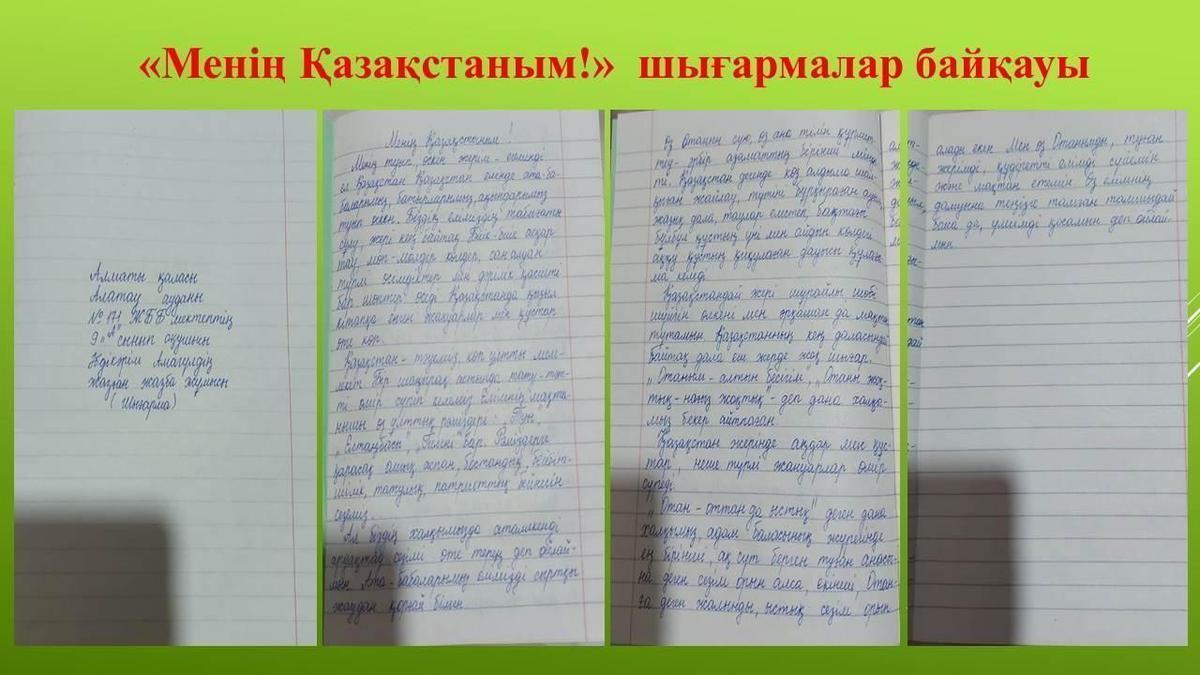 «Менің Қазақстаным!» шығармалар байқауы
Алматы қаласы
Алатау ауданы
№ 171 ЖББ мектептің
9 "А" сынып оқушысы
Әдікәрім Амагүлдің
жазған жазба жұмысы
(Шығарма)
Менің Қазақстаным!
Менің туып, өскен жерім - егеменді
ел Қазақстан. Қазақстан елінде ата-ба-
баларымыз, батырларымыз, ақындарымыз
туып өскен. Біздің еліміздің табиғаты
сұлу, жері кең байтақ. Биік-биік асқар
тау, мөп-мөлдір көлдер, сан алуан
түрлі өсімдіктер мен дәрілік қасиеті
бар шөптер өседі. Қазақстанда қызыл
кітапқа енген жануарлар мен құстар
өте көп.
Қазақстан - тәуелсіз, көп ұлтты мем-
лекет. Бір шаңырақ астында тату-тәт-
ті өмір сүріп келеміз. Еліміздің мақта-
нышы өз ұлттық рәміздері: "Ту",
"Елтаңбасы", "Гимні" бар. Рәміздерге
қарасақ ашық аспан, бостандық, бейбіт-
шілік, татулық, патриоттық бейнесін
сеземіз.
Ал біздің халқымызда атамекенді
ардақтау сезімі өте терең деп ойлай-
мын. Ата-бабаларымыз елімізді сыртқы
жаудан қорғай білген
Өз Отанын сүю, өз ана тілін құрмет-
теу - әрбір азаматтың бірінші мінде-
ті. Қазақстан дегенде көз алдыма шал-
қыған жайлау, түтіні бұрқыраған ауыл,
жазық дала, таулар елестеп, бақтағы
бұлбұл құстың үні мен айдын көлдегі
аққу құстың қиқулаған дауысы құлағы-
ма келеді.
Қазақстандай жері шұрайлы, шөбі
шүйгін өлкені мен әрқашан да мақтан
тұтамын. Қазақстанның кең даласындай
байтақ дала еш жерде жоқ шығар.
"Отаным - алтын бесігім", "Отаны жоқ-
тың - наны жоқтық" - деп дана халқы-
мыз бекер айтпаған.
Қазақстан жерінде аңдар мен құс-
тар, неше түрлі жануарлар өмір
сүреді.
"Отан - оттан да ыстық" деген дана
халқымыз, адам баласының жүрегінде
ең бірінші, ақ сүт берген туған анасы-
на деген сезім орын алса, екінші, Отан-
ға деген жалынды, ыстық сезім орын
алады екен. Мен өз Отанымды, туған
жерімді, құдіретті елімді сүйемін
және мақтан етемін. Өз елімнің
дамуына теңізге тамған тамшыдай
болса да, үлесімді қосамын деп ойлай-
мын.